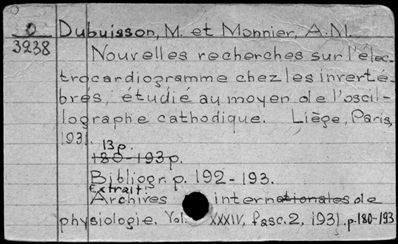 O Dubuisson, M. et Monnier, A.M.
3238 Nouvelles recherches sur l'élec-
trocardiogramme chez les inverté-
brés, étudié au moyen de l'oscil-
lographe cathodique. Liège, Paris,
1931.
13 p.
180-193 p.
Bibliogr. p. 192-193.
Extrait:
Archives internationales de
physiologie. Vol. XXXIV, fasc. 2, 1931. p. 180-193